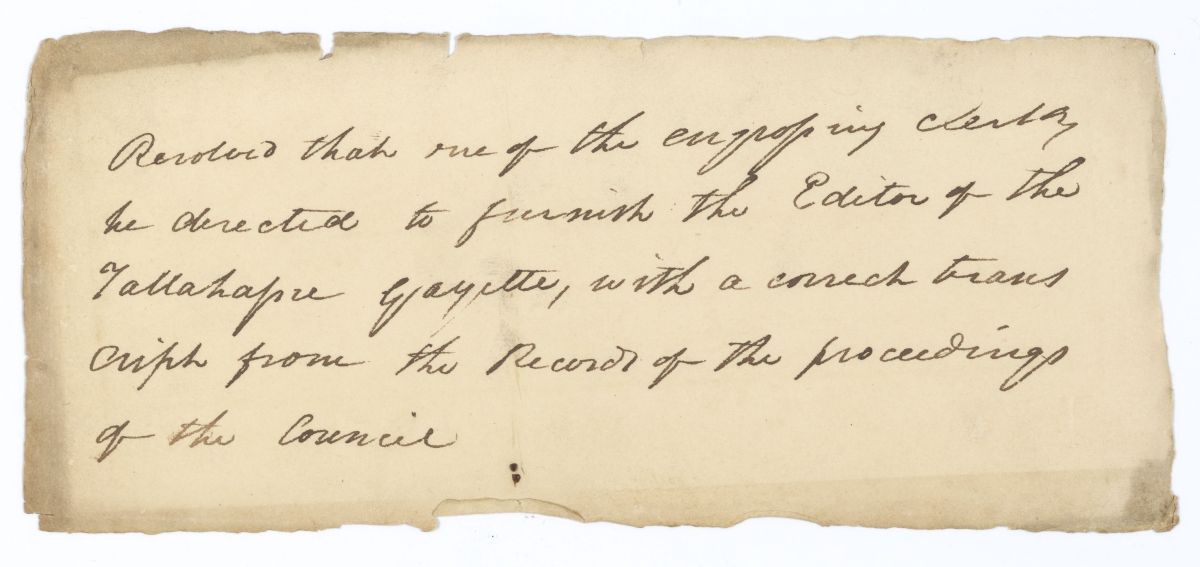 Resolved that one of the engrossing clerks,
be directed to furnish the Editor of the
Tallahassee Gazette, with a correct trans
cript from the Records of the proceedings
of the Council